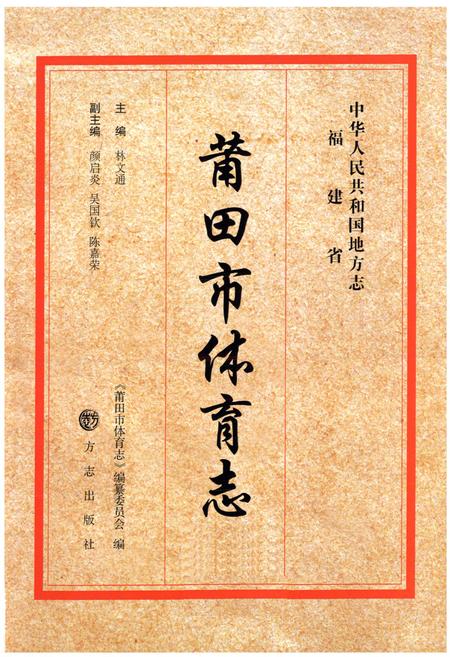 中华人民共和国地方志
福建省
莆田市体育志
主编 林文通
副主编 颜启炎 吴国钦 陈嘉荣
《莆田市体育志》编纂委员会 编
方志出版社